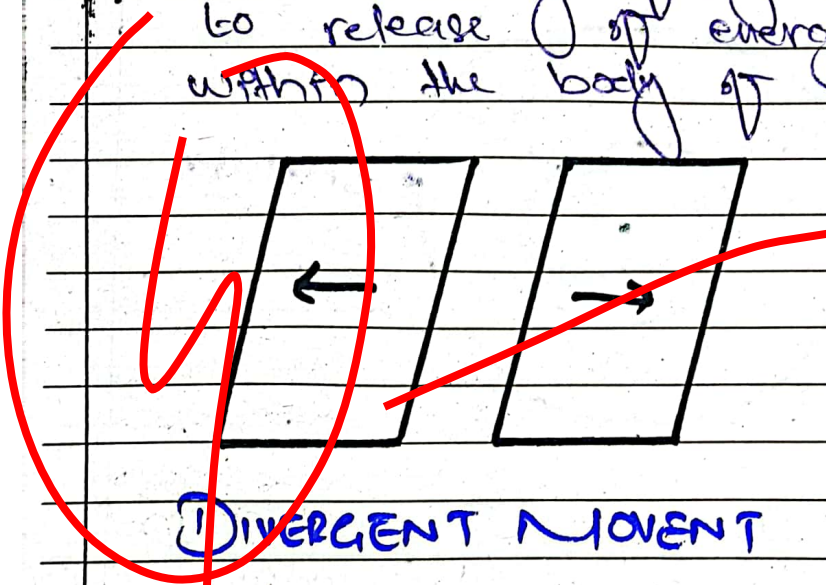 to release of energ
within the body of
4
DIVERGENT MOVENT